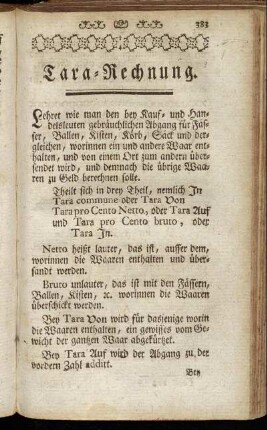 383
Tara-Rechnung.
Lehret wie man den bey Kauf- und Han-
delsleuten gebräuchlichen Abgang für Fäs-
ser, Ballen, Kisten, Körb, Säck und der-
gleichen, worinnen ein und andere Waar ent-
halten, und von einem Ort zum andern über-
sendet wird, und demnach die übrige Waa-
ren zu Geld berechnen solle.
Theilt sich in drey Theil, nemlich In
Tara commune oder Tara Von
Tara pro Cento Netto, oder Tara Auf
und Tara pro Cento bruto, oder
Tara In.
Netto heißt lauter, das ist, ausser dem,
worinnen die Waaren enthalten und über-
sandt werden.
Bruto unlauter, das ist mit den Fässern,
Ballen, Kisten, ꝛc. worinnen die Waaren
überschickt werden.
Bey Tara Von wird für dasjenige worin
die Waaren enthalten, ein gewisses vom Ge-
wicht der gantzen Waar abgekürtzet.
Bey Tara Auf wird der Abgang zu der
vordern Zahl additt.
Bey